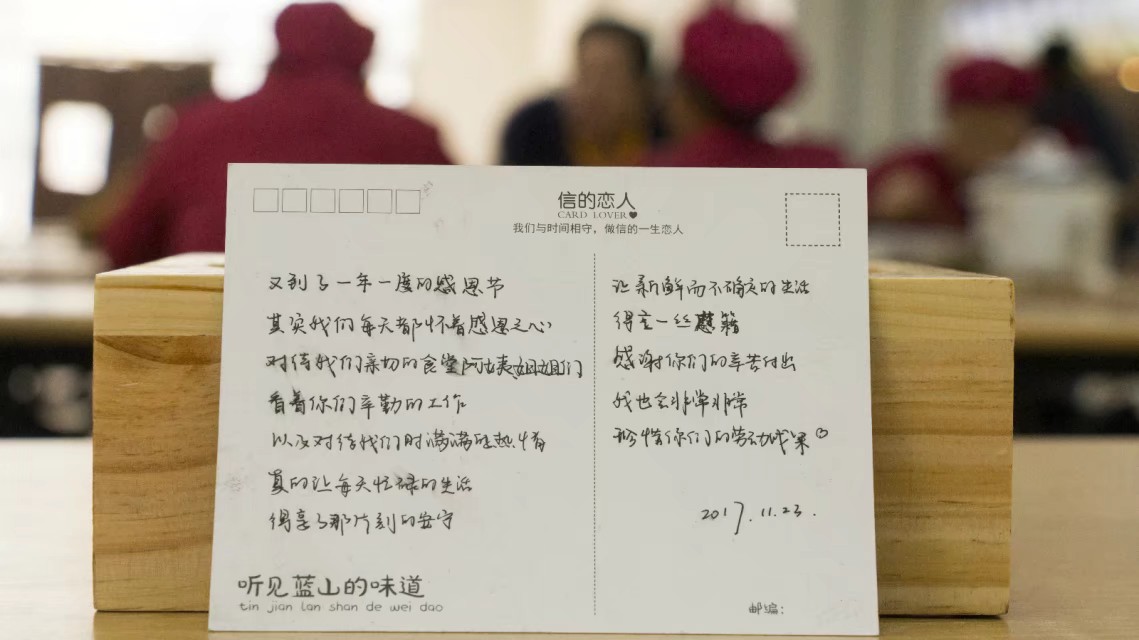 信的恋人
CARD LOVER
我们与时间相守，做信的一生恋人
又到了一年一度的感恩节
其实我们每天都怀着感恩之心
对待我们亲切的食堂阿姨姐姐们
看着你们辛勤的工作
以及对待我们时满满的热情
真的让每天忙碌的生活
得享了那片刻的安宁
让新鲜而不确定的生活
得至一丝慰籍
感谢你们的辛苦付出
我也会非常非常
珍惜你们的劳动成果
2017.11.23.
听见蓝山的味道
tin jian lan shan de wei dao
邮编：